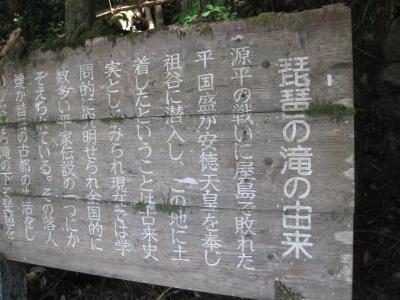 琵琶の滝の由来
源平の戦いに屋島で敗れた
平国盛が安徳天皇を奉し
祖谷に潜入し、この地に土
着したということは古来史
実としてみられ現在では学
問的に究明せられ全国的に
数多い平家伝説の一つにか
ぞえられている。その落人
達が昔の古都の生活をし
滝の下で琵琶を